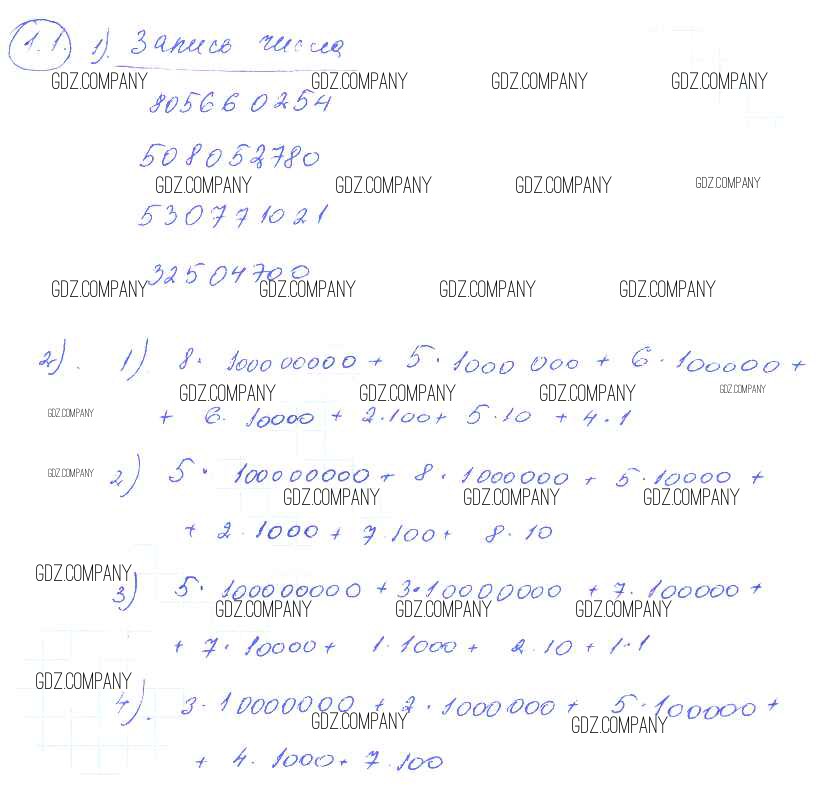 1.1. 1). Запись числа
GDZ.COMPANY GDZ.COMPANY GDZ.COMPANY GDZ.COMPANY
805660254
508052780
GDZ.COMPANY GDZ.COMPANY GDZ.COMPANY GDZ.COMPANY
530771021
32504700
GDZ.COMPANY GDZ.COMPANY GDZ.COMPANY GDZ.COMPANY
2). 1) 8· 100000000 + 5·1000 000 + 6·100000 +
GDZ.COMPANY GDZ.COMPANY GDZ.COMPANY GDZ.COMPANY
GDZ.COMPANY + 6· 10000 + 2·100+ 5·10 + 4·1
GDZ.COMPANY 2) 5· 100000000 + 8·1000000 + 5·10000 +
GDZ.COMPANY GDZ.COMPANY GDZ.COMPANY
+ 2·1000 + 7·100+ 8·10
GDZ.COMPANY
3) 5· 100000000 + 3·10000000 + 7·100000 +
GDZ.COMPANY GDZ.COMPANY GDZ.COMPANY
+ 7·10000 + 1·1000 + 2·10 + 1·1
GDZ.COMPANY
4). 3·10000000 + 2·1000000 + 5·100000 +
GDZ.COMPANY GDZ.COMPANY
+ 4·1000+ 7·100